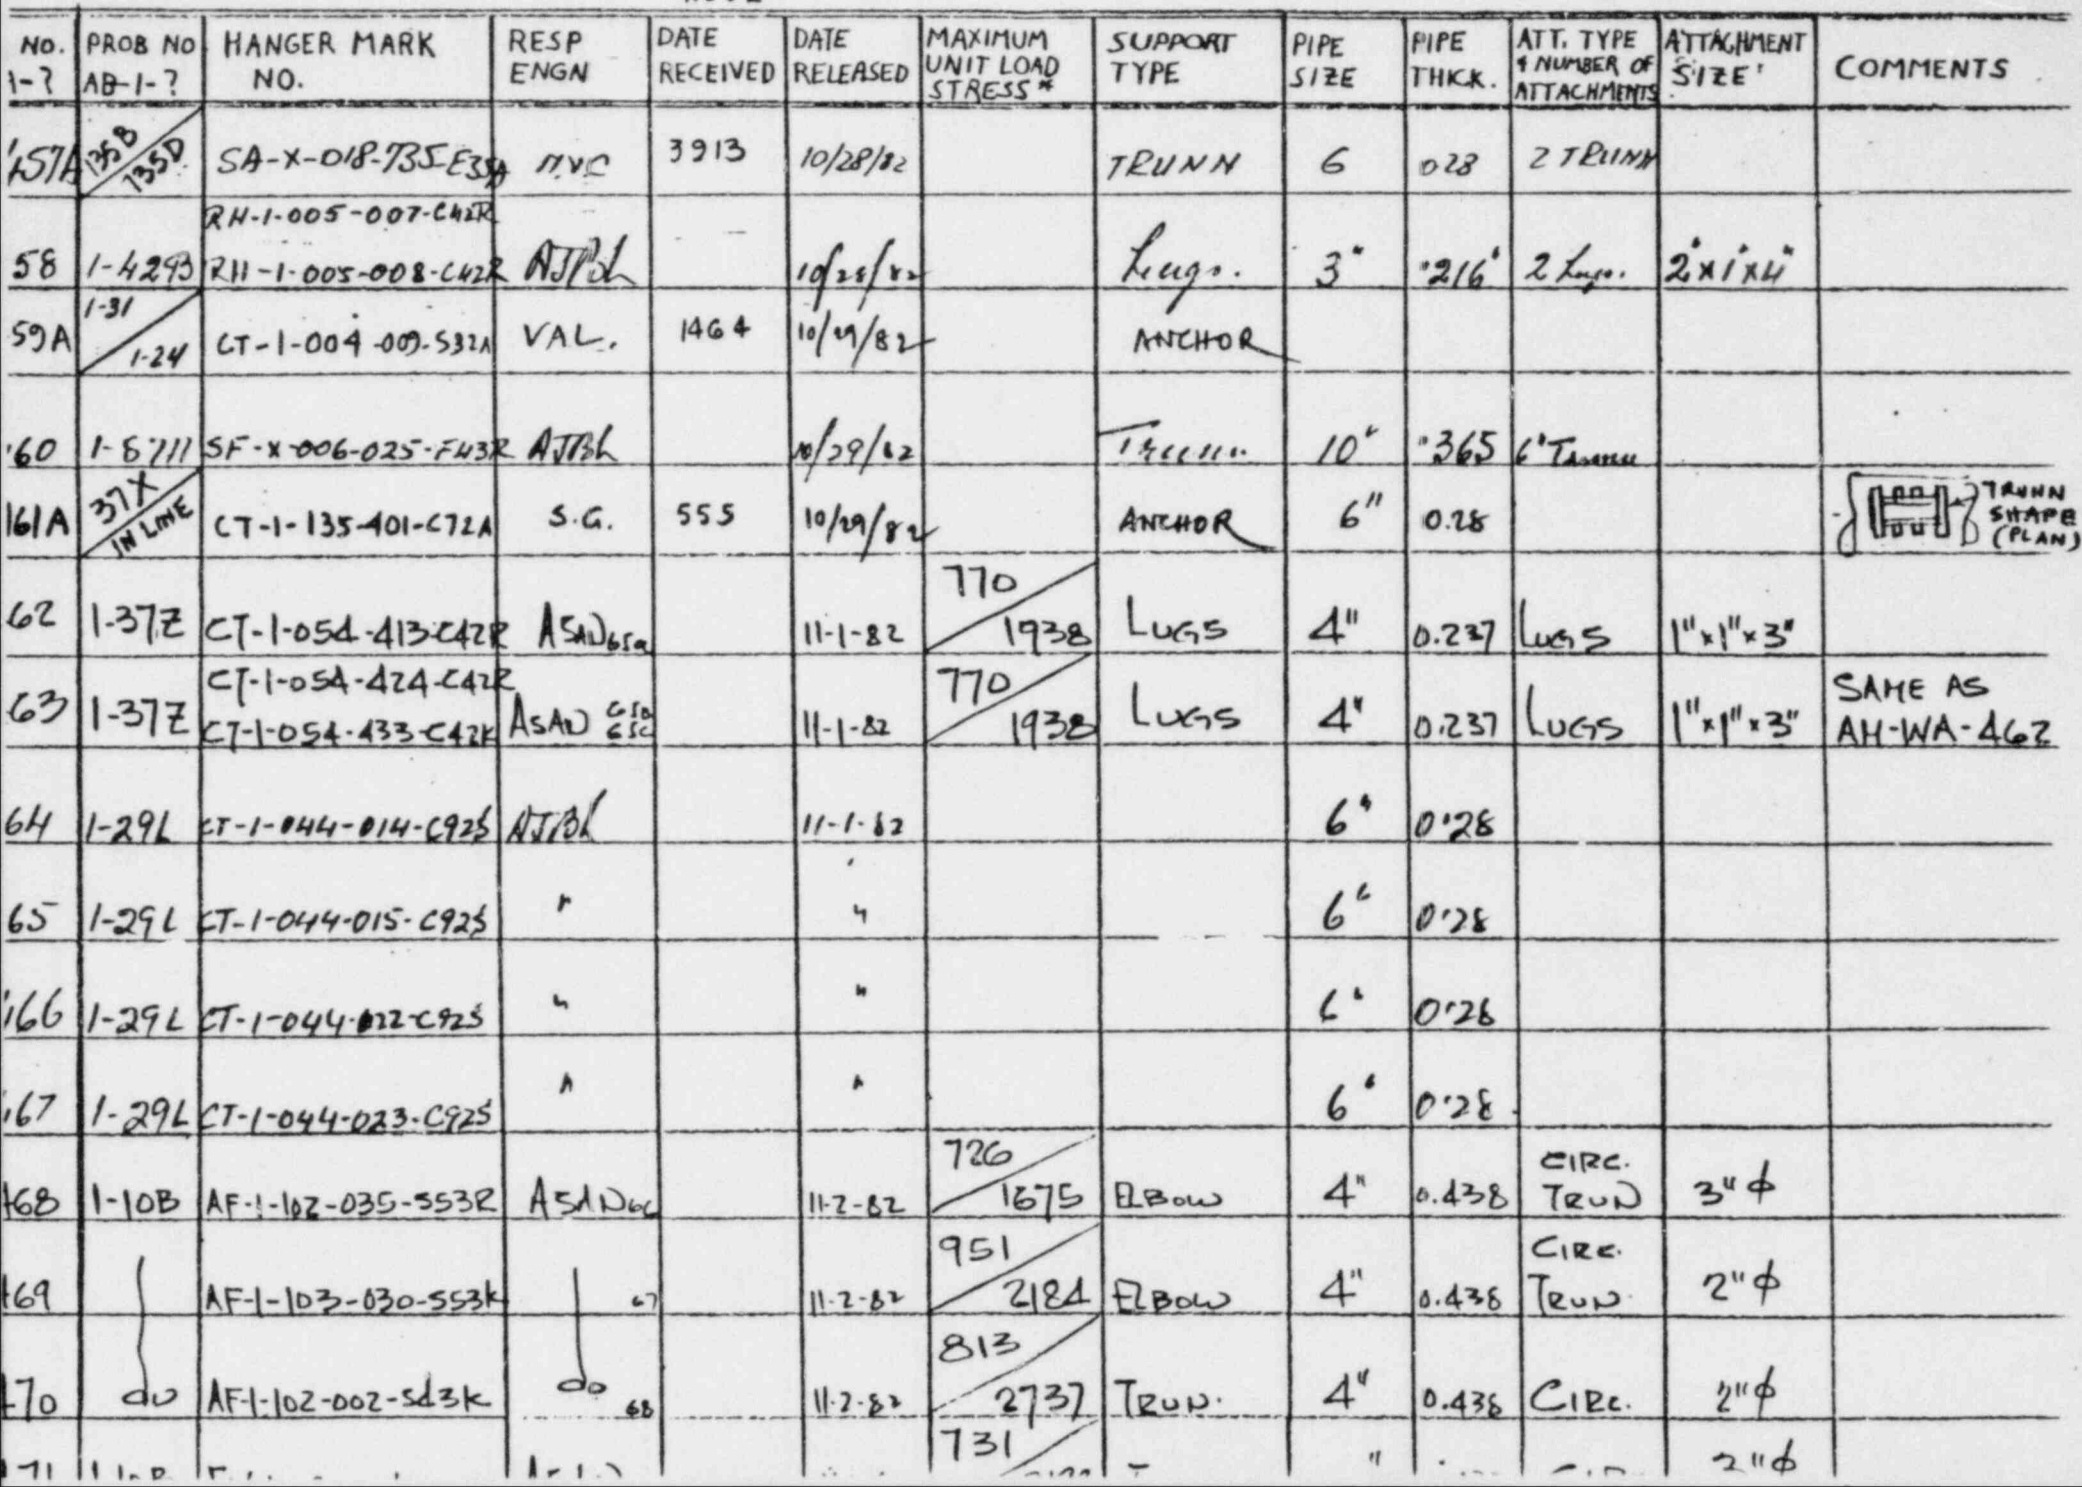 NO. 1-? PROB NO AB-1-? HANGER MARK NO. RESP ENGN DATE RECEIVED DATE RELEASED MAXIMUM UNIT LOAD STRESS* SUPPORT TYPE PIPE SIZE PIPE THICK. ATT. TYPE & NUMBER OF ATTACHMENTS ATTACHMENT SIZE COMMENTS
457A 135B/135D SA-X-018-735-E35A 3913 10/28/82 TRUNN 6 028 2 TRUNN
RH-1-005-007-C42R
58 1-4293 RH-1-005-008-C42R AJBL 10/28/82 Lugs. 3" .216" 2 Lugs. 2"x1"x4"
59A 1-31/1-24 CT-1-004-009-S32A VAL. 1464 10/29/82 ANCHOR
60 SF-X-006-025-F43R AJBL 10/29/82 Trunn. 10" .365 6"
161A 37X/IN LINE CT-1-135-401-C72A S.G. 555 10/29/82 ANCHOR 6" 0.28 TRUNN SHAPE (PLAN)
62 1-37Z CT-1-054-413-C42R ASAD 65a 11-1-82 770/1938 LUGS 4" 0.237 LUGS 1"x1"x3"
CT-1-054-424-C42R
63 1-37Z CT-1-054-433-C42R ASAD 65B 65C 11-1-82 770/1938 LUGS 4" 0.237 LUGS 1"x1"x3" SAME AS AH-WA-462
64 1-29L CT-1-044-014-C92S AJBL 11-1-82 6" 0.28
65 1-29L CT-1-044-015-C92S " " 6" 0.28
166 1-29L CT-1-044-022-C92S " " 6" 0.28
67 1-29L CT-1-044-023-C92S " " 6" 0.28
468 1-10B AF-1-102-035-S53R ASAD 66 11-2-82 726/1675 ELBOW 4" 0.438 CIRC. TRUN 3"φ
469 AF-1-103-030-S53R 67 11-2-82 951/2184 ELBOW 4" 0.438 CIRC. TRUN. 2"φ
470 do AF-1-102-002-S43R do 68 11-2-82 813/2737 TRUN. 4" 0.438 CIRC. 2"φ
731 " 2"φ